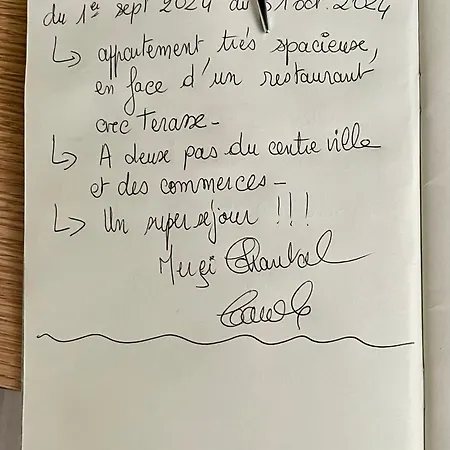 du 1er sept 2024 au 31 oct. 2024
↳ appartement très spacieuse,
en face d'un restaurant
avec Terasse -
↳ A deux pas du centre ville
et des commerces -
↳ Un super séjour !!!
Merçi Chantal